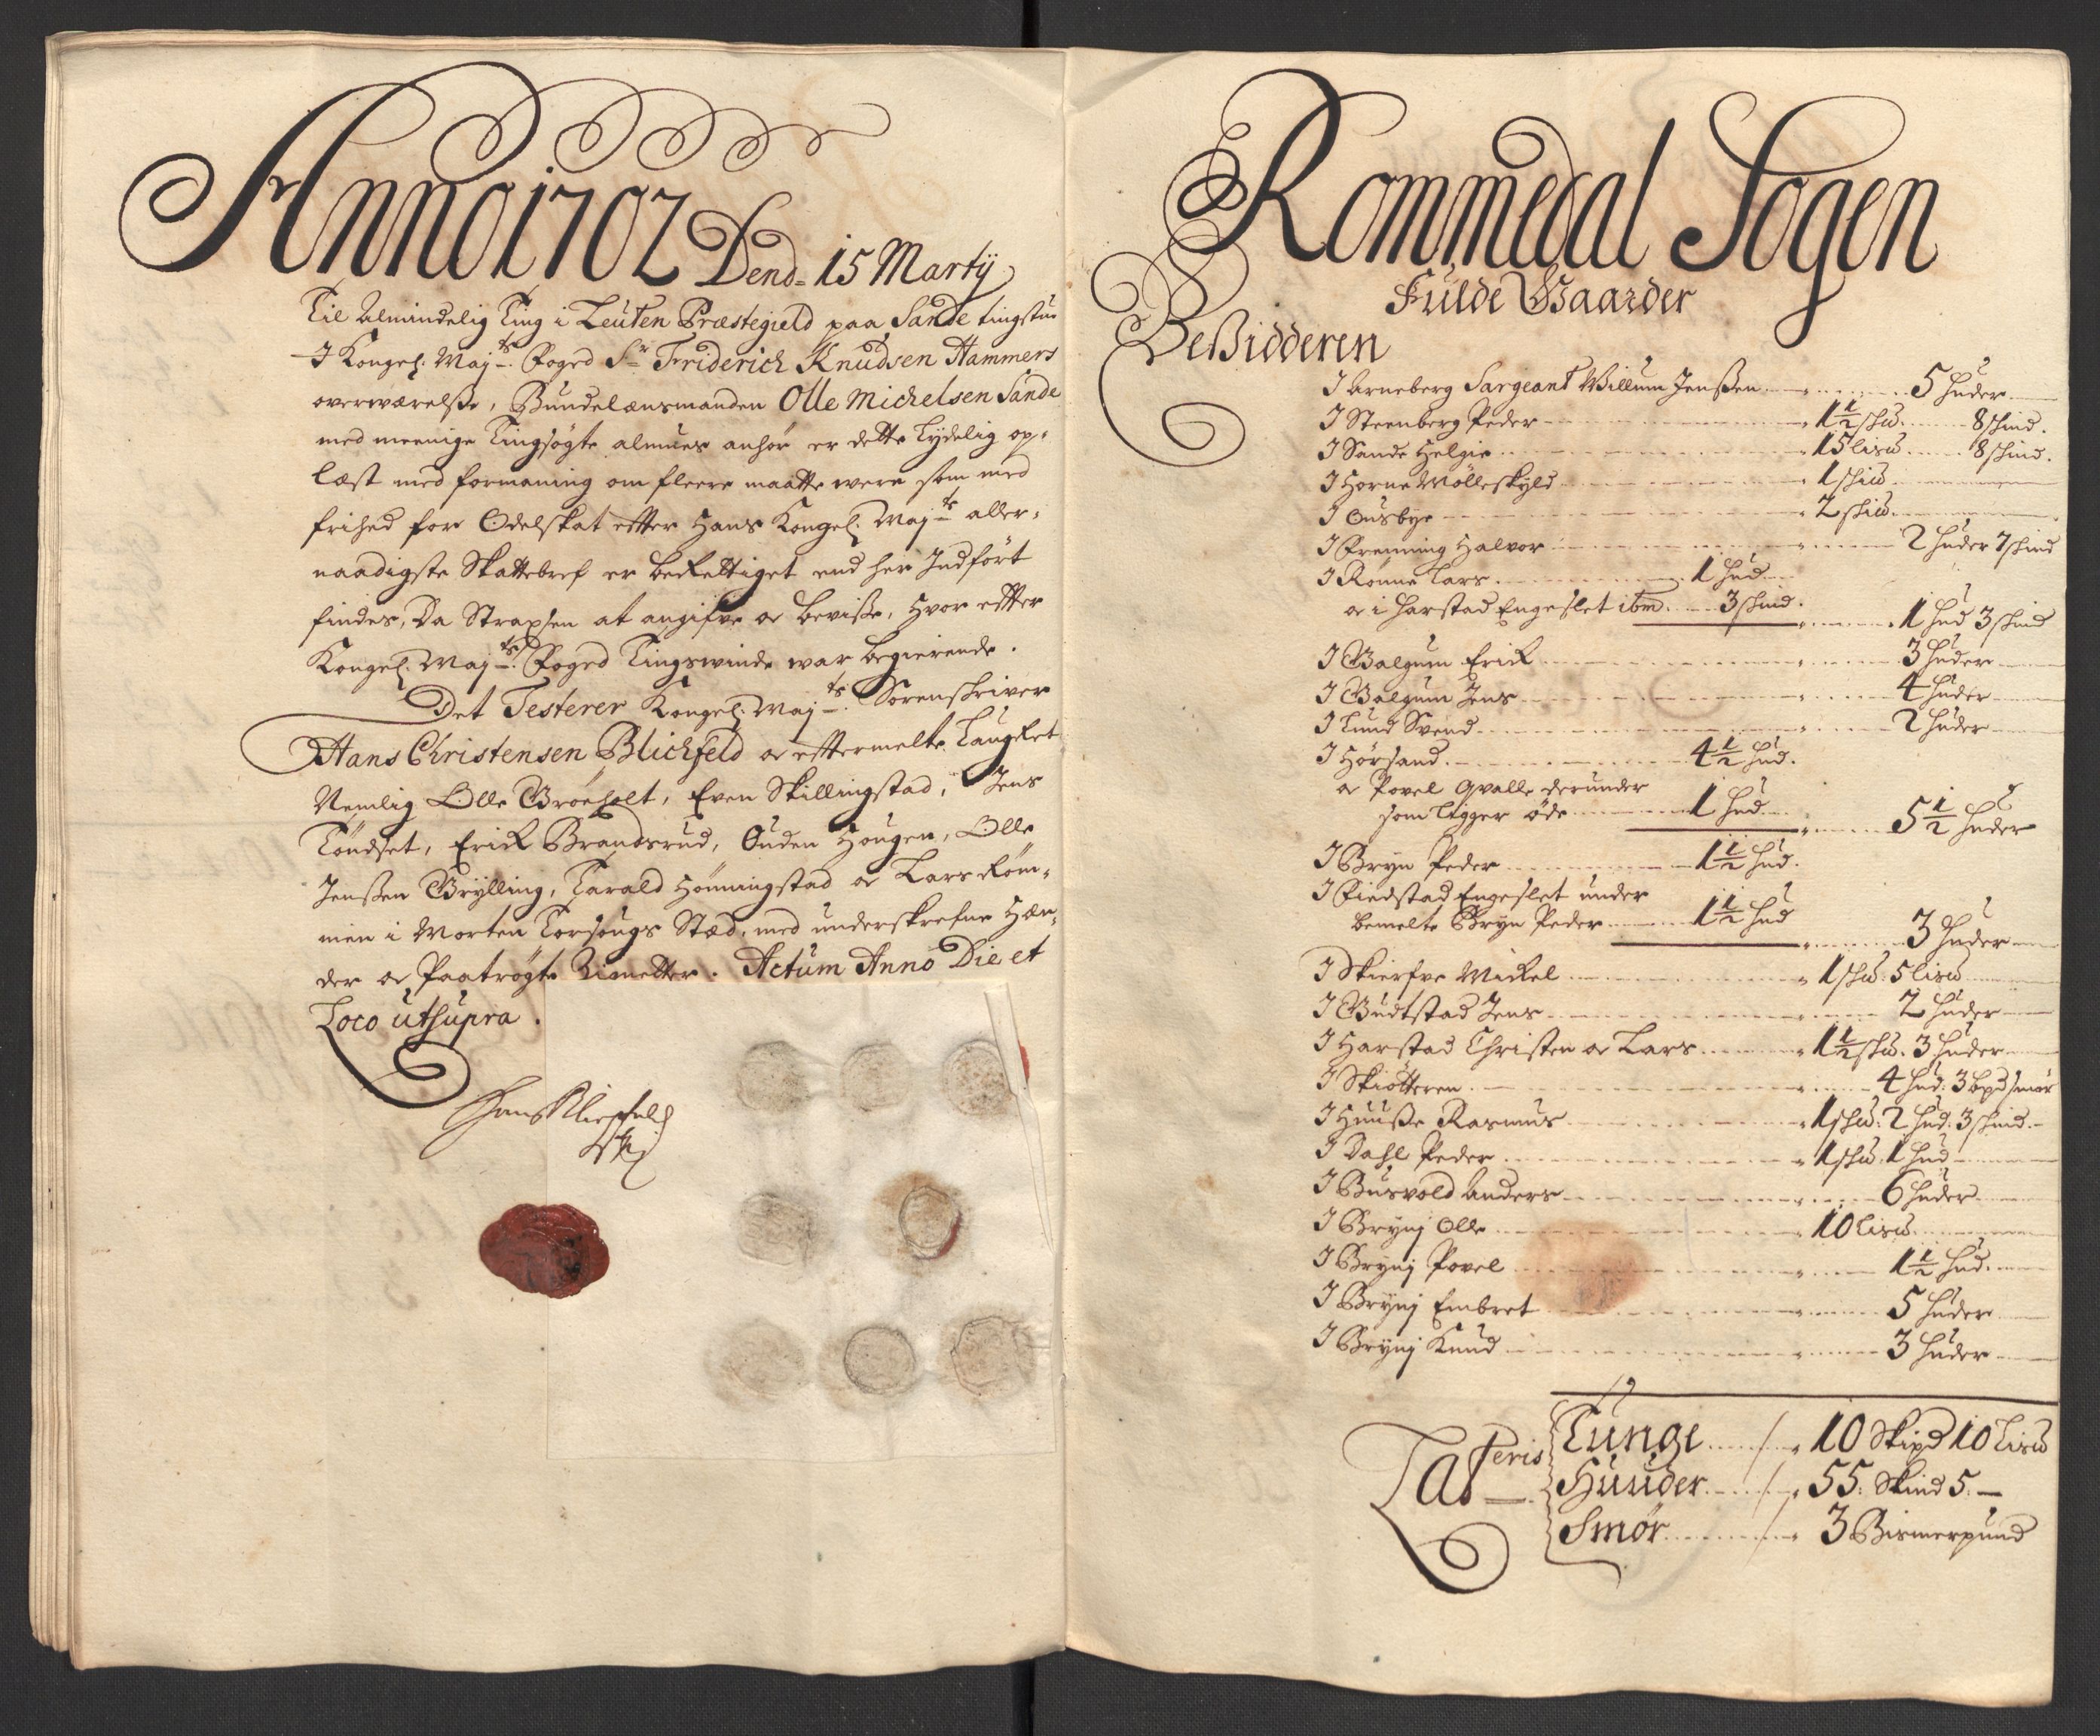 Anno 1702 Dend= 15 Martÿ
Til Almindelig Ting i Leuten Præstegield paa Sande tingstue
I Kongel: Maj:ts Foged Sr Friderich Knudsen Hammers
overværelße, Bundelænsmanden Olle Michelsen Sande
med meenige Tingsøgte almues anhør er dette Tydelig op=
læst med formaning om fleere maatte were som med
frihed for Odelskat efter Hans Kongel: Maj:ts aller=
naadigste Skattebref er berettiget end her Indført
findes, Da Straxsen at angifve oc beviße, Hvor effter
Kongel: Maj:ts Foged Tingswinde war begierende.
Det Testerer Kongel: Maj:ts Sorenschriver
Hans Christensen Blichfeld oc eftermelte Laugret
Nemlig Olle Grönholt, Even Skillingstad, Jens
Töndset, Erick Brandsrud, Ouden Hougen, Olle
Jenßen Grÿlling, Tarald Hönningstad oc Lars Röm=
men i Morten Torshougs Stæd, med underskrefne Hæn=
der oc Paatrögte Zignetter. Actum Anno Die et
Loco ut supra.
Hans Bliechfeld
Rommedal Sogen
Fulde Gaarder
Beßidderen
I Arneberg Sargeant Willum Jenßen 5 huder
I Steenberg Peder 1½ sh℔. 8 skind.
I Sande Helgie 15 lis℔ 8 skind.
I Horne Mölleskyld 1 shi℔
I Ousbye 2 shi℔.
I Frenning Halvor 2 huder 7 skind
I Rönne Lars 1 hud
oc i Harstad Engeslet ibm. 3 skind. 1 hud 3 skind
I Balgum Erick 3 huder
I Balgum Jens 4 huder
I Lund Svend 2 huder
I Hörsand 4½ hud.
oc Povel Qvalle derunder
som ligger øde 1 hud 5½ huder
I Bryn Peder 1½ hud.
I Fiedstad Engeslet under
bemelte Bryn Peder 1½ hud 3 huder
I Skierfve Mickel 1 sh℔: 5 lis℔
I Gudtstad Jens 2 huder
I Harstad Christen oc Lars 1½ sh℔. 3 huder
I Skiötteren 4 hud: 3 bpd smør
I Huuße Rasmus 1 sh℔: 2 hud: 3 skind.
I Dahl Peder 1 sh℔. 1 hud
I Busvold Anders 6 huder
I Brÿnj Olle 10 lis℔
I Brÿnj Povel 1½ hud.
I Brÿnj Embret 5 huder
I Brÿnj Knud 3 huder
Lateris Tunge 10 Skipd 10 Lis℔
Huuder 55: Skind 5.
Smør 3 Bismerpund